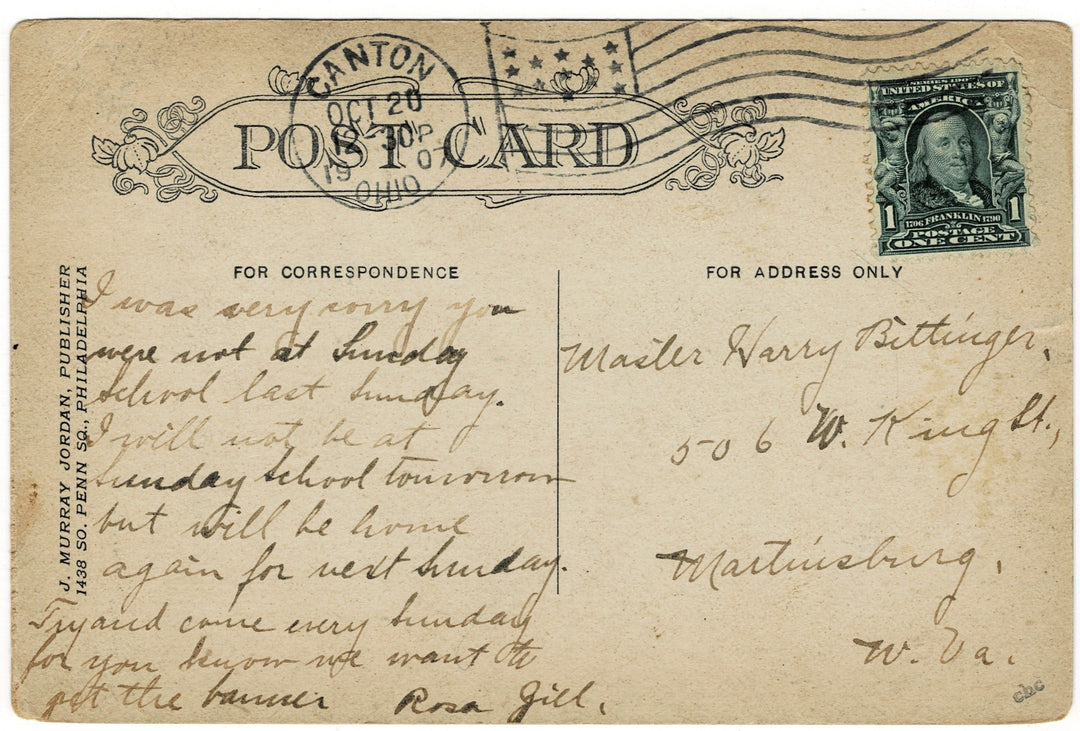 CANTON
OCT 20
12-30P
19 07
OHIO
POST CARD
SERIES 1902
UNITED STATES OF
AMERICA
1 1706 FRANKLIN 1790 1
POSTAGE
ONE CENT
FOR CORRESPONDENCE
FOR ADDRESS ONLY
J. MURRAY JORDAN, PUBLISHER
1438 SO. PENN SQ., PHILADELPHIA
I was very sorry you
were not at Sunday
School last Sunday.
I will not be at
Sunday School tomorrow
but will be home
again for next Sunday.
Try and come every Sunday
for you know we want to
get the banner Rosa Gill.
Master Harry Bittinger,
506 W. King St.,
Martinsburg,
W. Va.
cbc